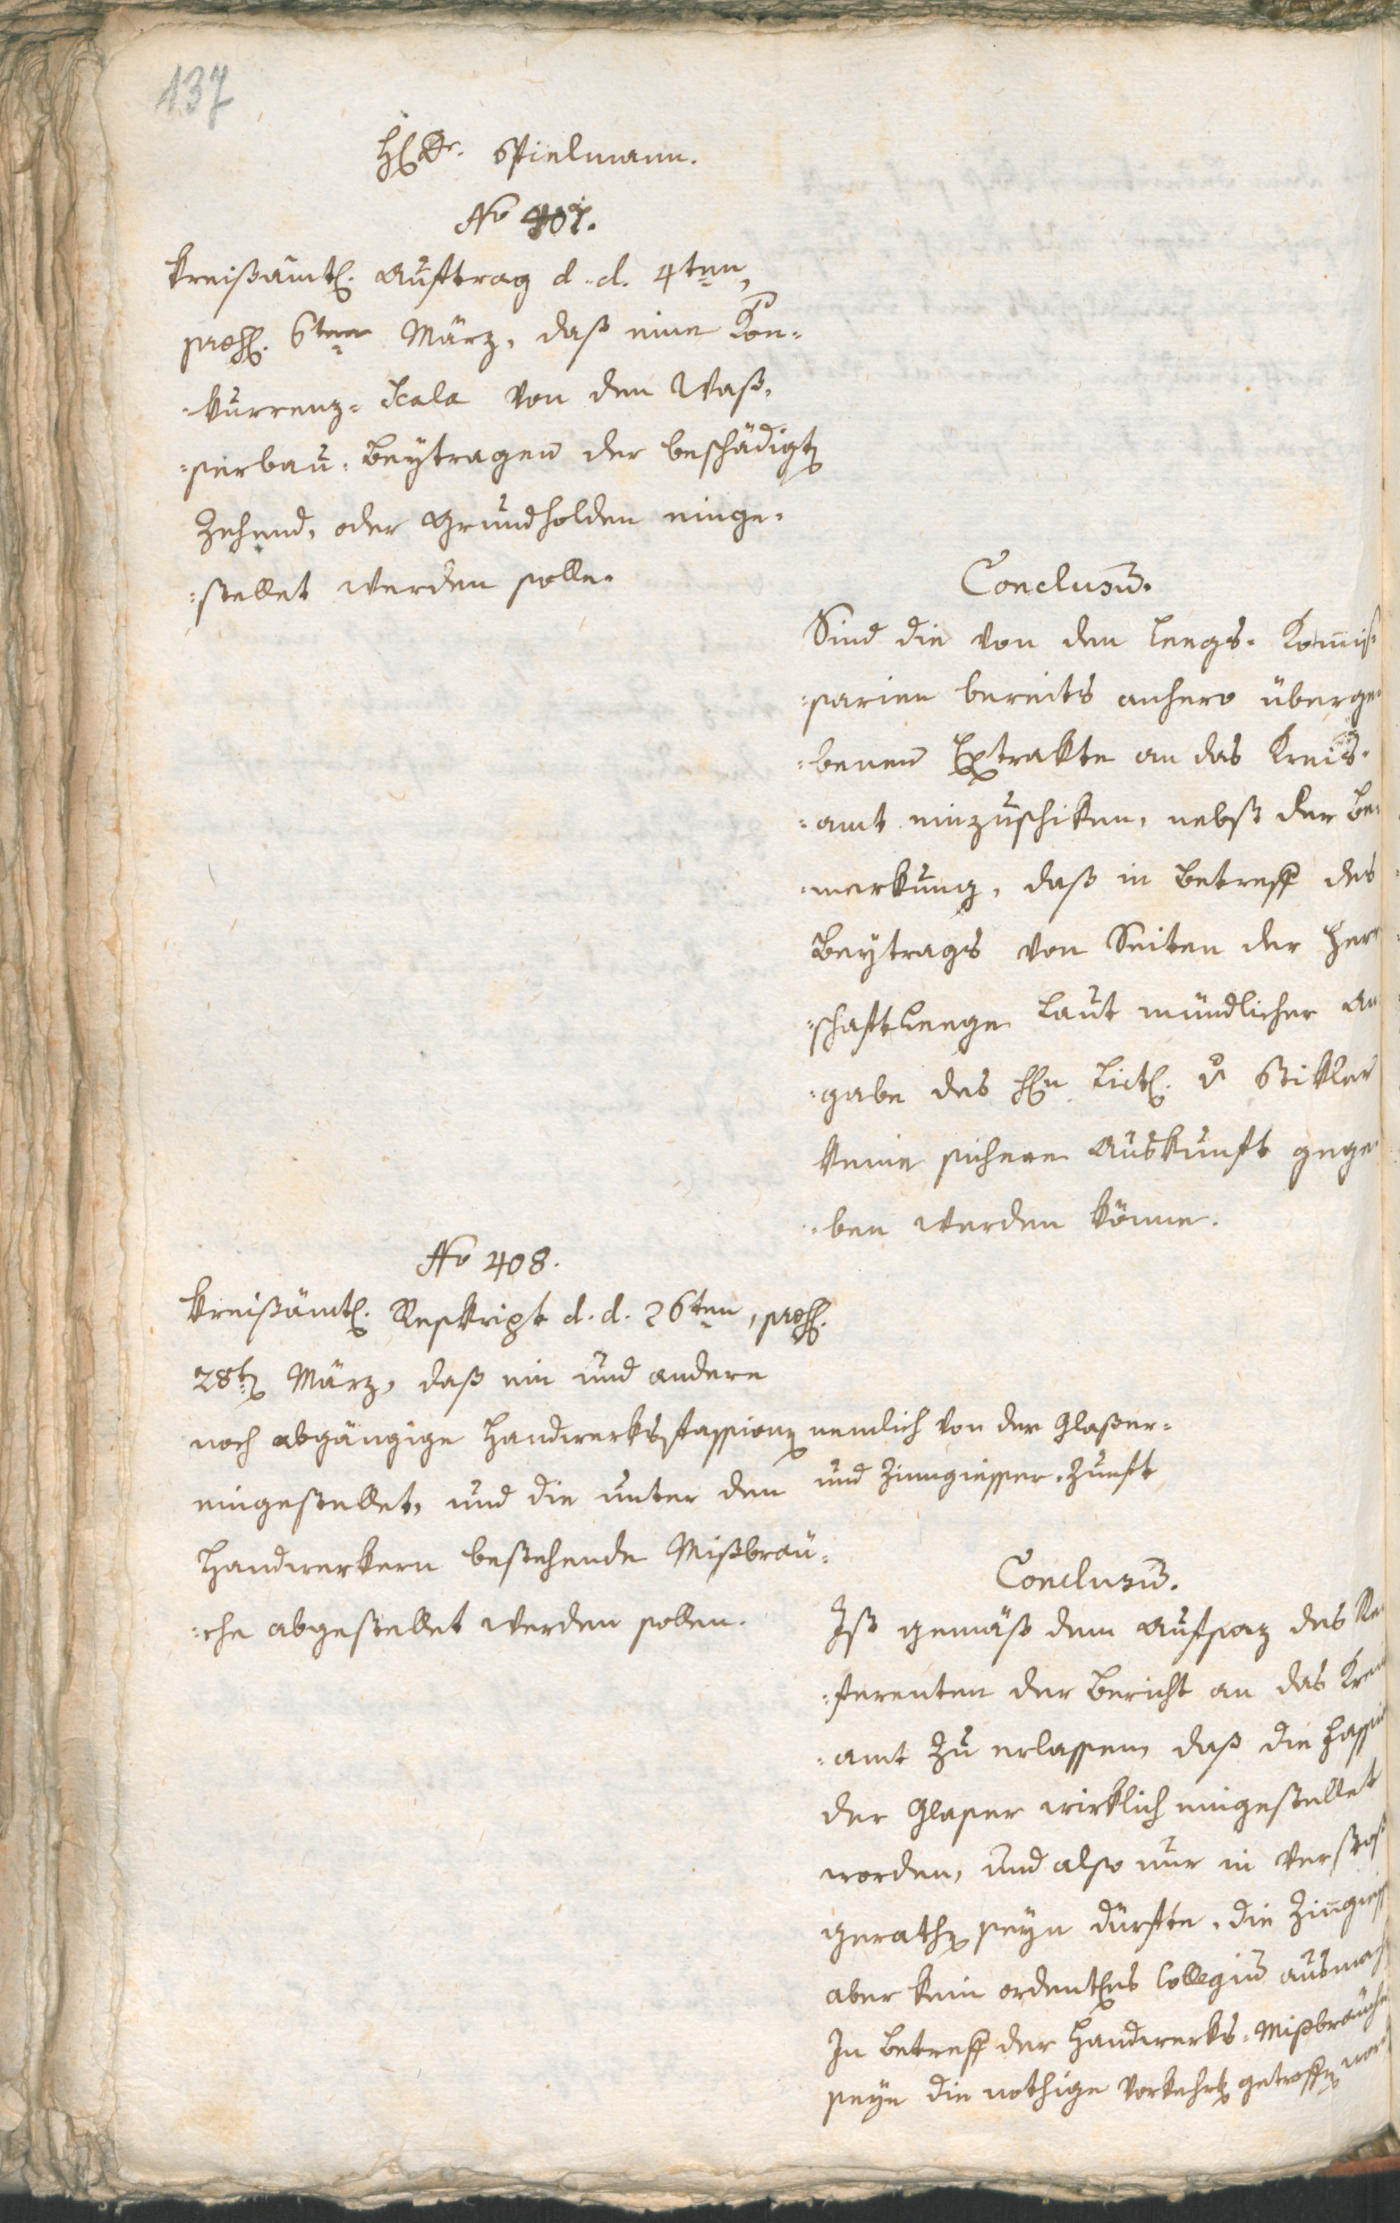 137
H. Dr. Spielmann.
No 407.
Kreißämtl. Auftrag d. d. 4ten,
präs. 6ten März, daß eine Kon-
-kurrenz-Scala von den Waß-
-serbau-Beytragen der beschädigt
Zehend, oder Grundholden einge-
-stellet werden solle.
Conclusum.
Sind die von den Leegs-Kommis
-sarien bereits anhero überge-
-benen Extrakte an das Kreis-
-amt einzuschiken, nebst der Be-
-merkung, daß in Betreff des
Beytrags von Seiten der Herr
-schaftleege laut mündlicher An
-gabe des Hn. Lict. v Stikler
keine sichere Auskunft gege-
-ben werden könne.
No 408.
Kreißämtl. Reskript d. d. 26ten, präs.
28t März, daß ein und andere
noch abgängige Handwerksfassionen nemlich von der Glaßer-
eingestellet, und die unter den und Zinngiesser-Zunft
Handwerkern bestehende Mißbräu-
-che abgestellet werden sollen.
Conclusum.
Ist gemäß dem Aufsaz des Re-
-ferenten der Bericht an das Kreis
-amt zu erlassen, daß die Fassion
der Glaser wirklich eingestellet
worden, und also nur in Verstoß
gerathen seyn dürfte. die Zinngiess
aber kein ordentliches Collegium ausmach
In Betreff der Handwerks-Mißbräuche
seyn die nothige Vorkehr getroffen wor